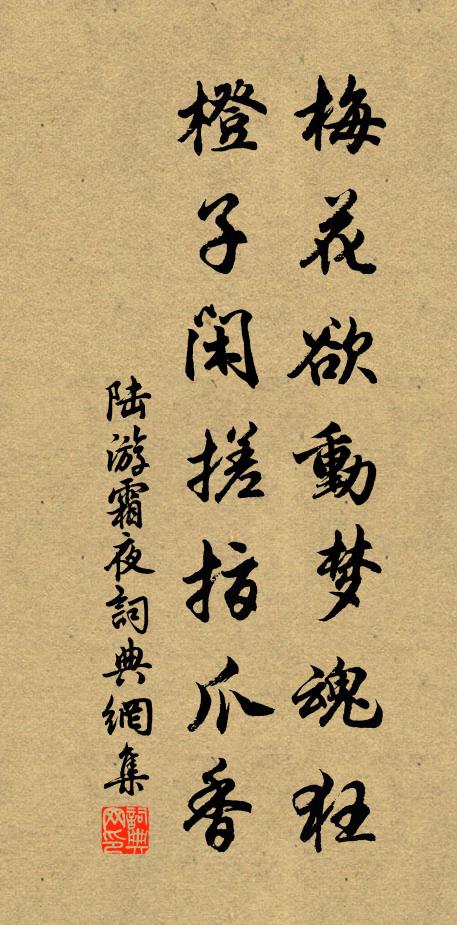 梅花欲動梦魂狂
橙子闲搓指爪香
陆游霜夜詞典網集
詞典网印